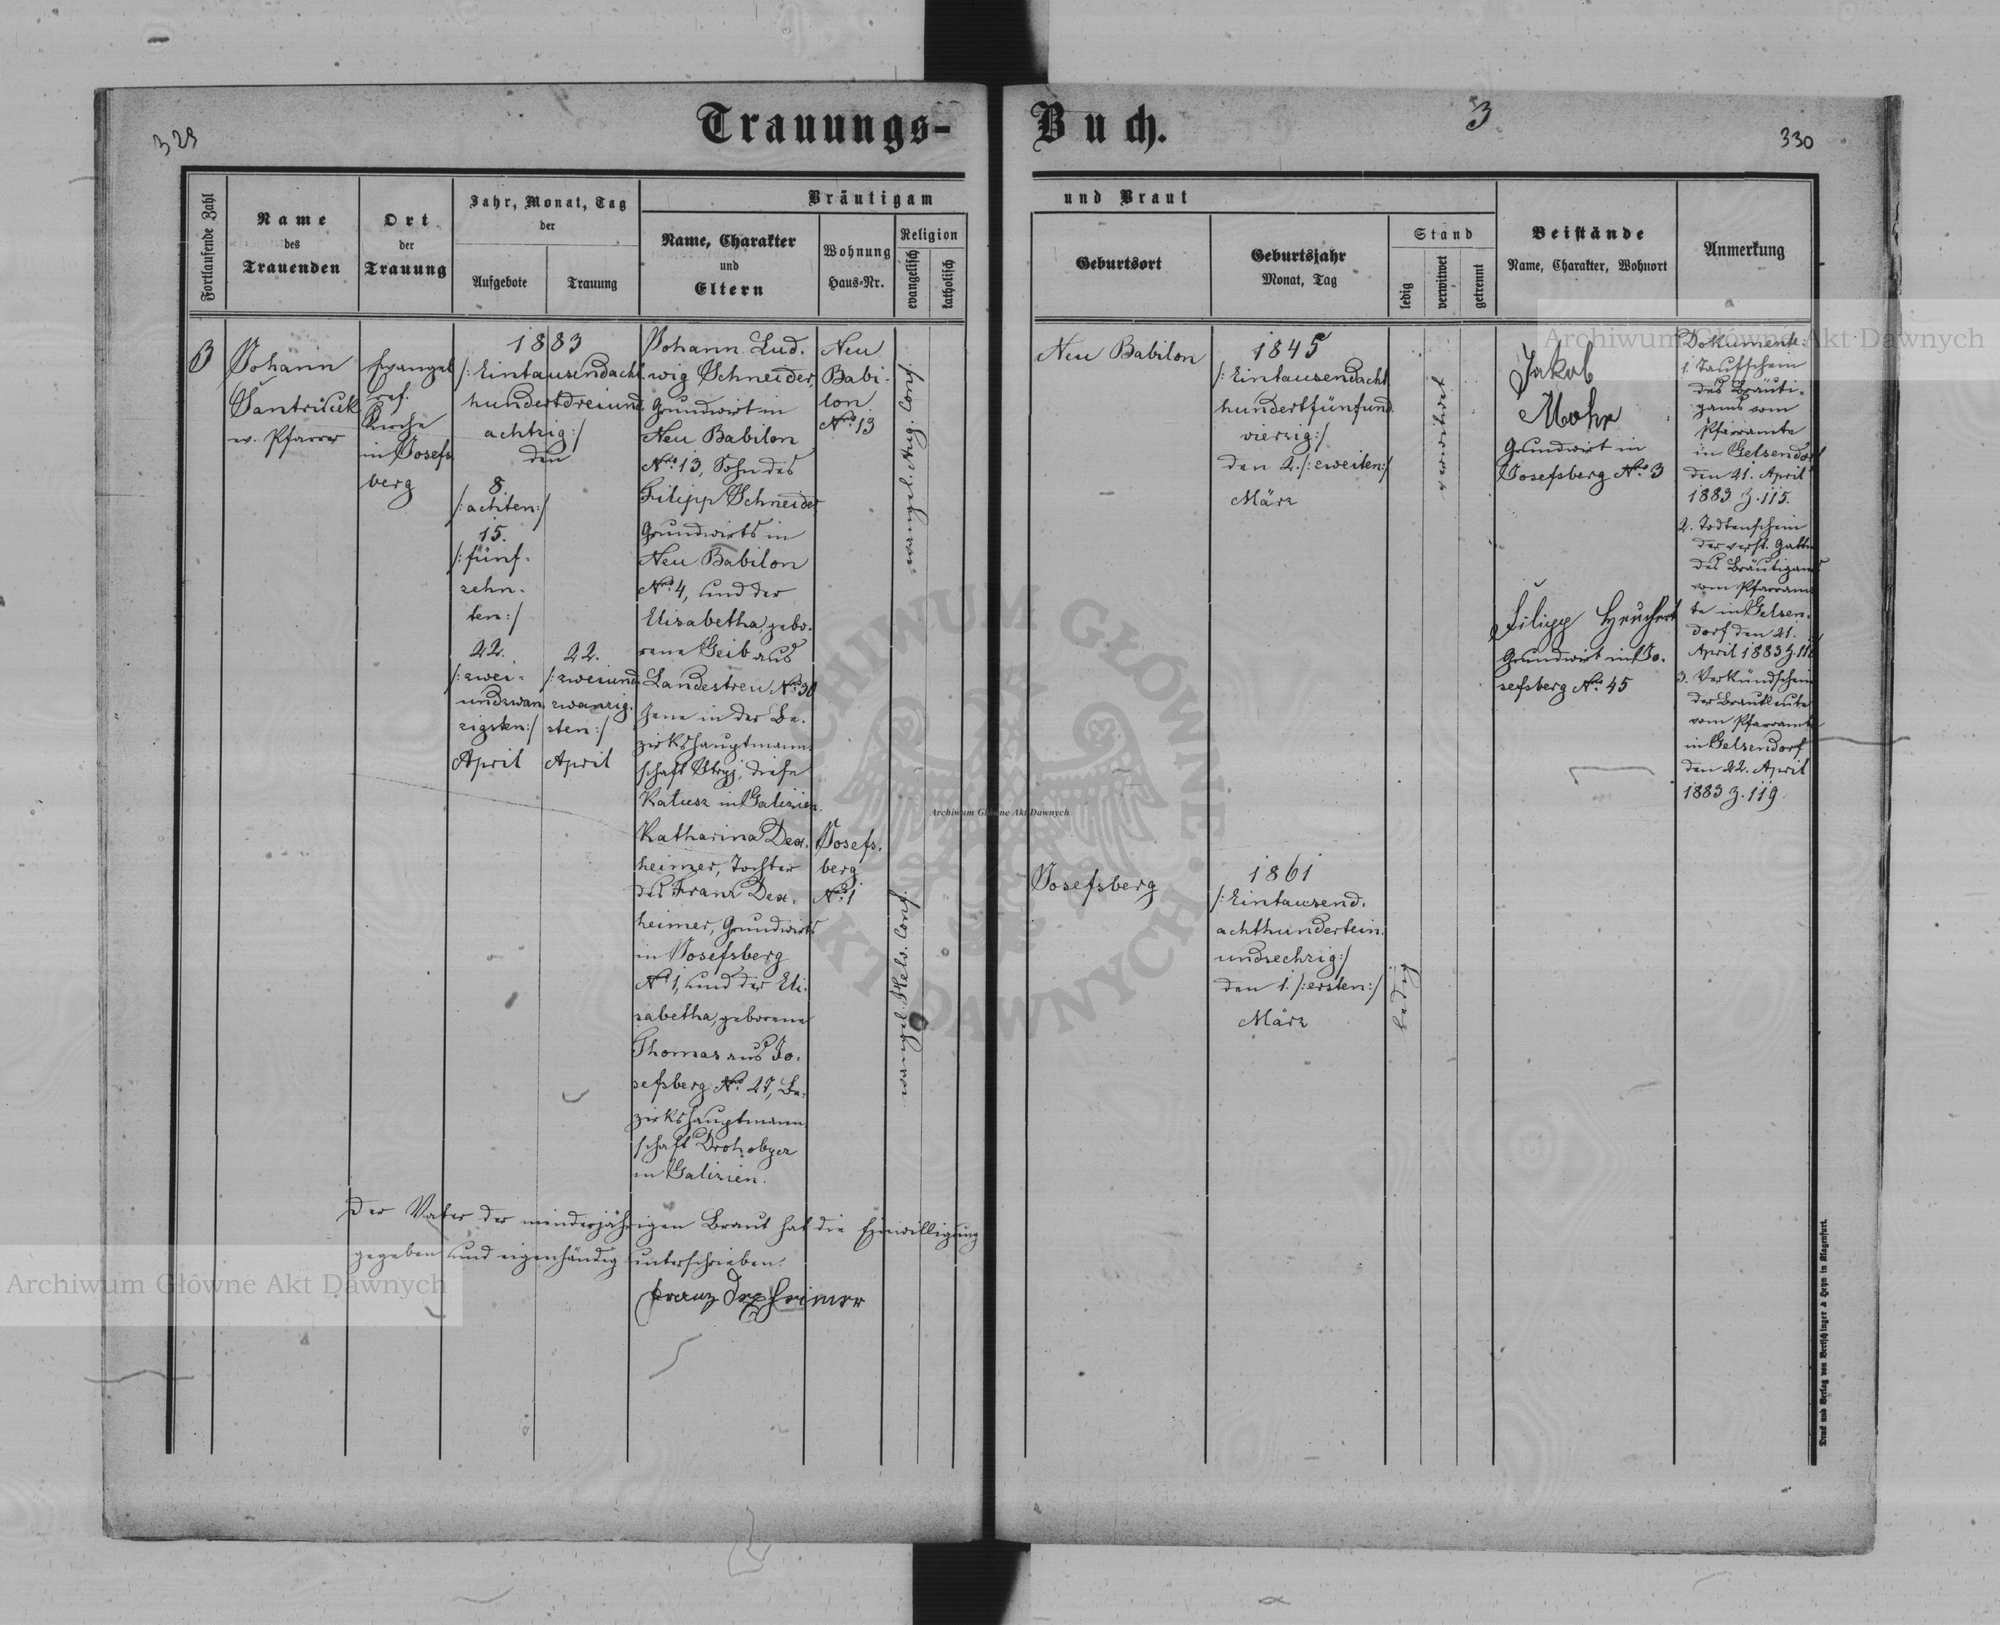 329
Trauungs-
Buch.
3
330
Fortlaufende Zahl
Name
des
Trauenden
Ort
der
Trauung
Jahr, Monat, Tag
der
Aufgebote
Trauung
Bräutigam
Name, Charakter
und
Eltern
Wohnung
Haus-Nr.
Religion
evangelisch
katholisch
und Braut
Geburtsort
Geburtsjahr
Monat, Tag
Stand
ledig
verwitwet
getrennt
Beistände
Name, Charakter, Wohnort
Anmerkung
3
Johann
Jantričuk
w. Pfarrer
Evangel
ref.
Kirche
in Josefs
berg
1883
/: Eintausendacht
hundertdreiund
achtzig :/
den
8.
/: achten :/
15.
/: fünf-
zehn-
ten :/
22.
/: zwei-
undzwan
zigsten :/
April
22.
/: zweiund
zwanzig.
sten :/
April
Johann Lud.
wig Schneider,
Grundwirt in
Neu Babilon
No. 13, Sohn des
Filipp Schneider
Grundwirts in
Neu Babilon
No. 4, und der
Elisabetha, gebo.
rene Geib aus
Landestreu No. 30
Jene in der Be.
zirkshauptmann
schaft Stryj, diese
Kalusz in Galizien.
Neu
Babi-
lon
No. 13
evangel. Aug. Conf.
Neu Babilon
1845
/: Eintausendacht
hundertfünfund
vierzig :/
den 2. /: zweiten :/
März
verwitwet
Jakob
Mohr
Grundwirt in
Josefsberg No. 3
Filipp Heuchert
Grundwirt in Jo.
sefsberg No. 45
Dokumente:
1. Taufschein
des Bräuti-
gams vom
Pfarramte
in Gelsendorf
den 21. April
1883 Z. 115.
2. Todtenschein
der verst. Gattin
des Bräutigams
vom Pfarram
te in Gelsen.
dorf den 21.
April 1883 Z. 116
3. Verkündschein
der Brautleute
vom Pfarramte
in Gelsendorf
den 22. April
1883 Z. 119.
Katharina Dex.
heimer, Tochter
des Franz Dex.
heimer, Grundwirts
in Josefsberg
No. 1, und der Eli.
sabetha, geborene
Thomas aus Jo.
sefsberg No. 27, Be.
zirkshauptmann
schaft Drohobycz
in Galizien.
Josefs.
berg
No. 1
evangel. Helv. Conf.
Josefsberg
1861
/: Eintausend.
achthundertein.
undsechzig :/
den 1. /: ersten :/
März
ledig
Der Vater der minderjährigen Braut hat die Einwilligung
gegeben und eigenhändig unterschrieben.
Franz Dexheimer
Druck und Verlag von Bertschinger & Heyn in Klagenfurt.
Archiwum Główne Akt Dawnych
Archiwum Główne Akt Dawnych
Archiwum Główne Akt Dawnych
ARCHIWUM GŁÓWNE AKT DAWNYCH